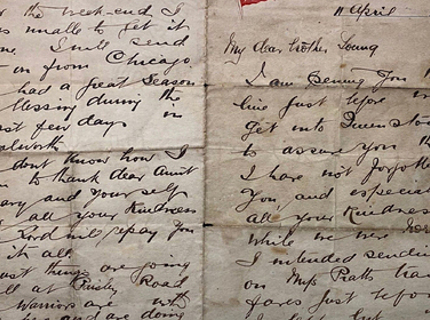 the week-end I
was unable to get it
I will send
it on from Chicago
had a great Season
blessing during the
last few days in
Walworth
dont know how I
to thank dear Aunt
Mary and yourself
all your Kindness
Lord will repay you
it all.
things are going
well at Paisley Road
Warriors are with
and are doing
11 April
My dear brother Young
I am penning you
line just before
get into Queenstown
to assure you
I have not forgotten
You, and especially
all your Kindness
while we were
I intended sending
on Miss Pratts train
fares just before